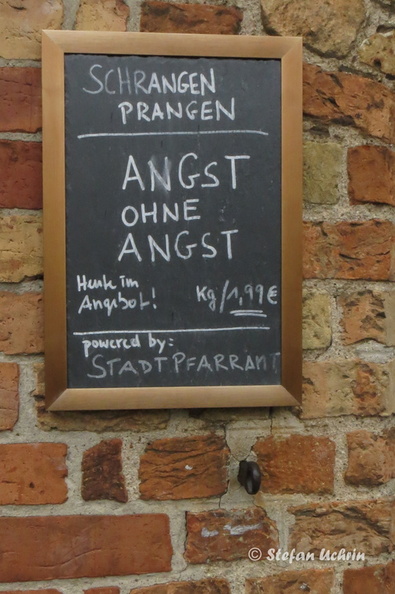 SCHRANGEN
PRANGEN
ANGST
OHNE
ANGST
Heute im
Angebot!
Kg/1,99€
powered by:
STADTPFARRAMT
© Stefan Uchrin